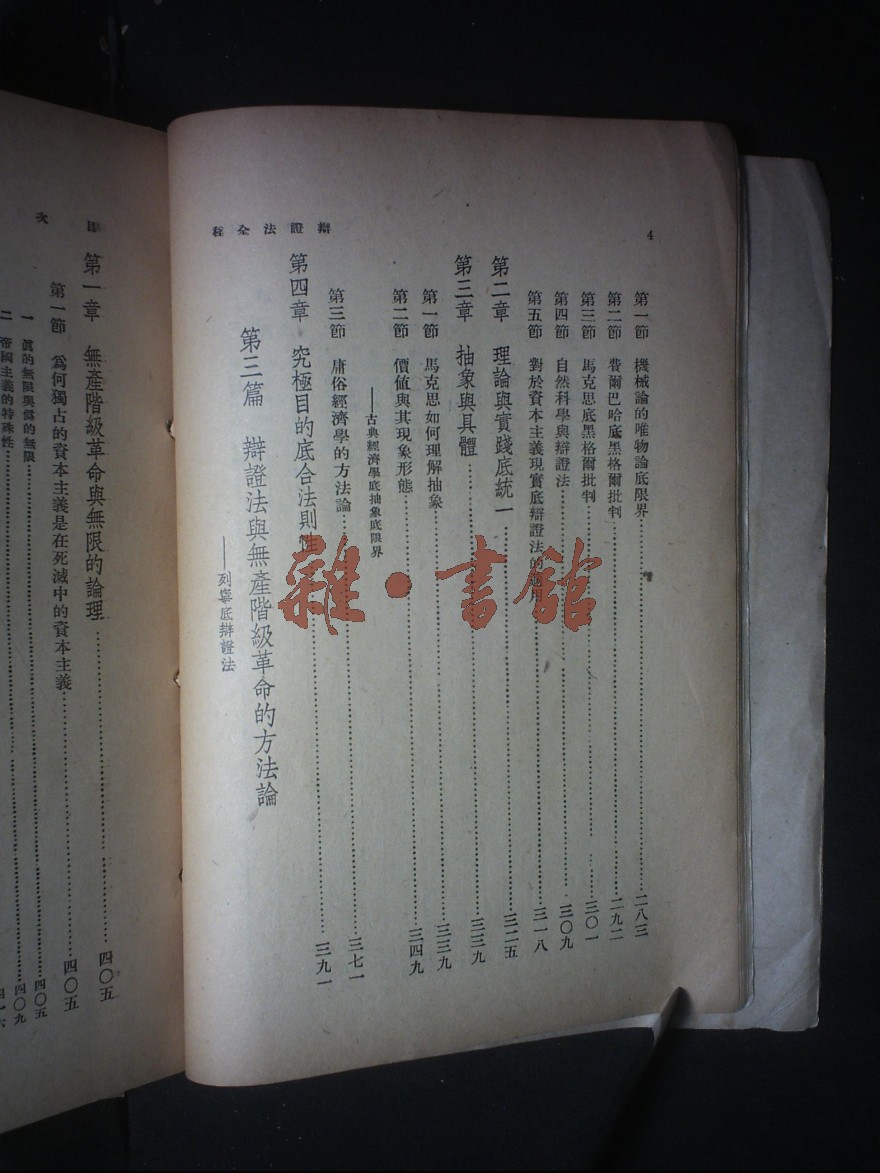 4
辯證法全程
第一節 機械論的唯物論底限界……二八三
第二節 費爾巴哈底黑格爾批判……二九二
第三節 馬克思底黑格爾批判……三〇一
第四節 自然科學與辯證法……三〇九
第五節 對於資本主義現實底辯證法的適用……三一八
第二章 理論與實踐底統一……三二五
第三章 抽象與具體……三三九
第一節 馬克思如何理解抽象……三三九
——古典經濟學底抽象底限界
第二節 價值與其現象形態……三四九
第三節 庸俗經濟學的方法論……三七一
第四章 究極目的底合法則性……三九一
第三篇 辯證法與無產階級革命的方法論
——列寧底辯證法
目次
第一章 無產階級革命與無限的論理……四〇五
第一節 爲何獨占的資本主義是在死滅中的資本主義……四〇五
一 眞的無限與僞的無限……四〇五
二 帝國主義的特殊性……四〇九
四一六
雜·書館